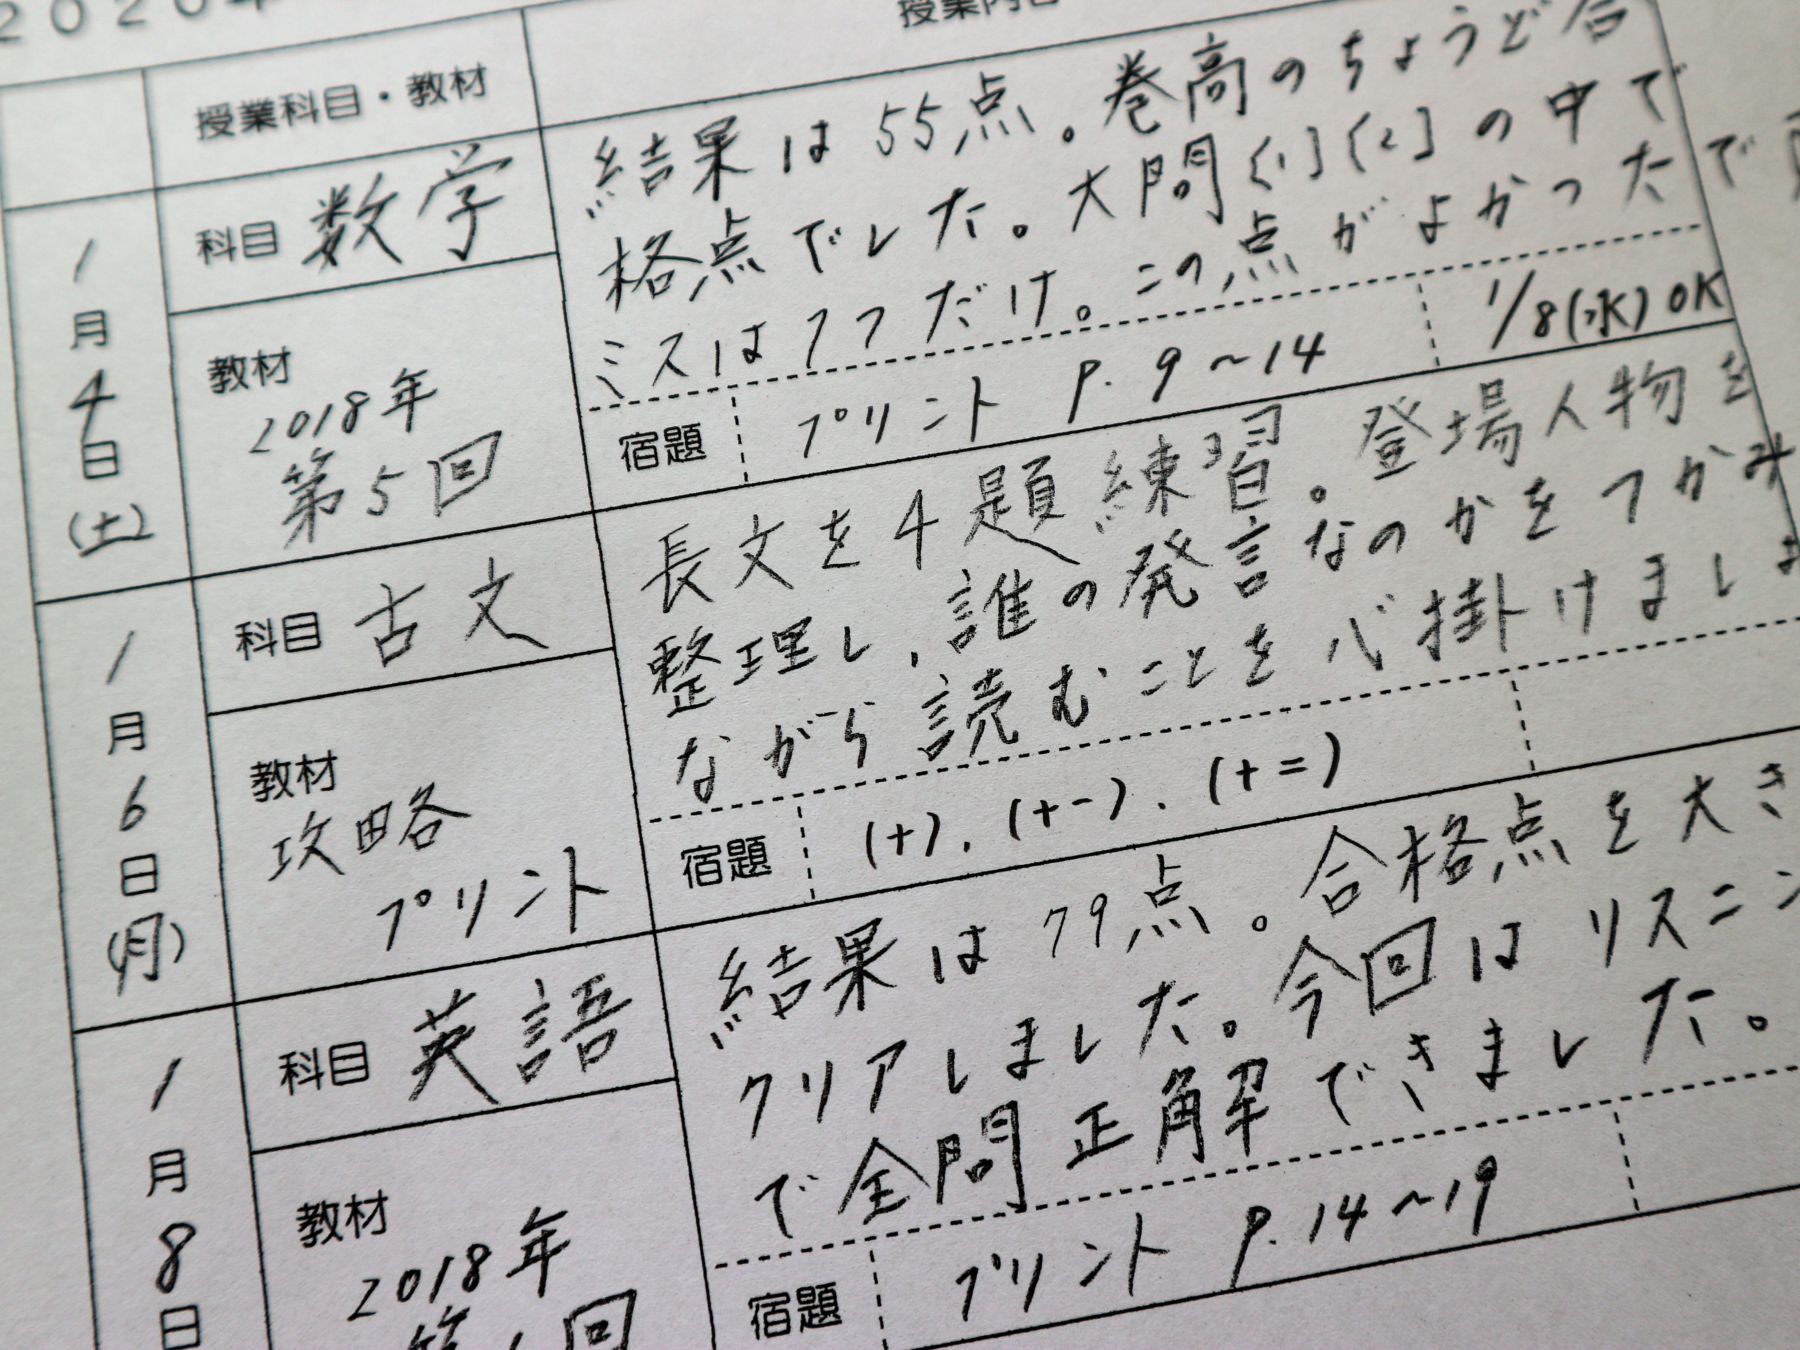 2020年
授業内容
授業科目・教材
1月4日(土)
科目 数学
教材
2018年
第5回
結果は55点。巻高のちょうど合
格点でした。大問[1][2]の中で
ミスは1つだけ。この点がよかったで
宿題 プリント P.9~14 1/8(水)OK
1月6日(月)
科目 古文
教材
攻略
プリント
長文を4題練習。登場人物を
整理し、誰の発言なのかをつかみ
ながら読むことを心掛けましょ
宿題 (+)、(+-)、(+=)
1月8日
科目 英語
教材
2018年
結果は79点。合格点を大き
クリアしました。今回はリスニン
で全問正解できました。
宿題 プリント P.14~19